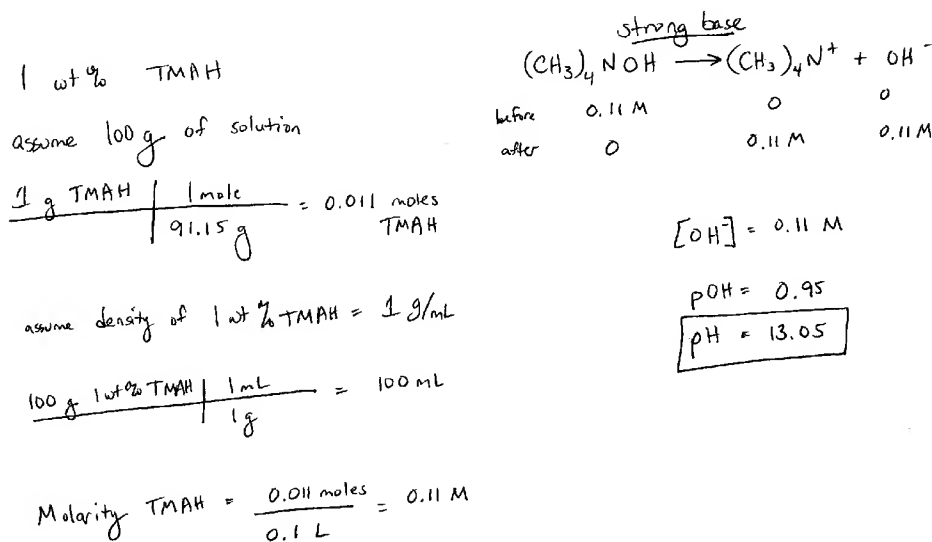 1 wt % TMAH
assume 100 g of solution
1 g TMAH | 1 mole = 0.011 moles
91.15 g TMAH
assume density of 1 wt % TMAH = 1 g/mL
100 g 1 wt % TMAH | 1 mL = 100 mL
1 g
Molarity TMAH = 0.011 moles = 0.11 M
0.1 L
strong base
(CH₃)₄ NOH → (CH₃)₄N⁺ + OH⁻
before 0.11 M 0 0
after 0 0.11 M 0.11 M
[OH⁻] = 0.11 M
pOH = 0.95
pH = 13.05